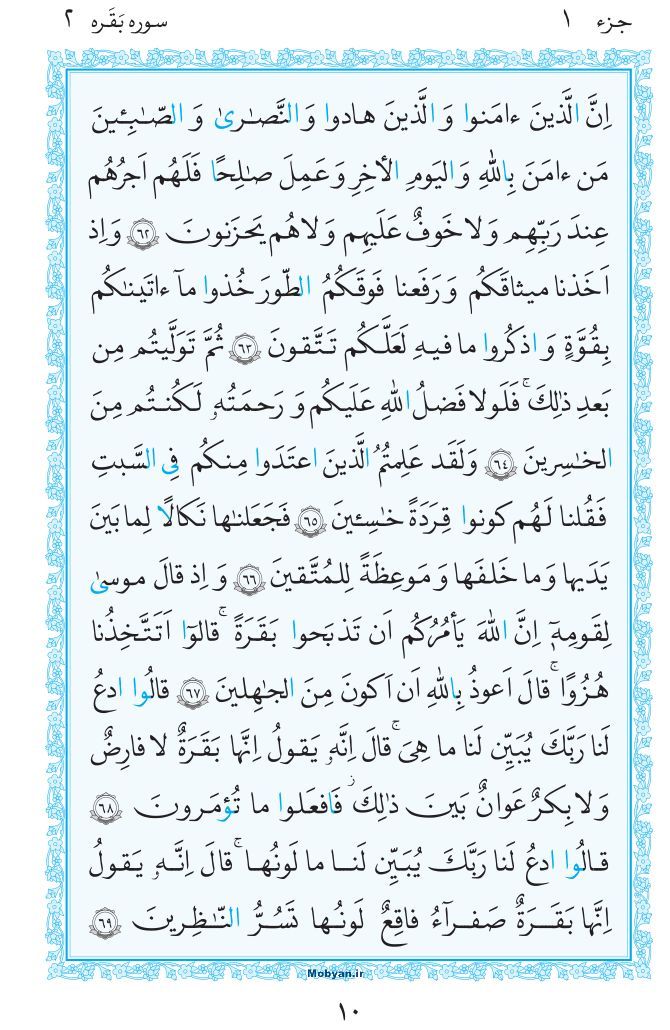 جزء ١ سوره بَقَره ٢
اِنَّ الَّذينَ ءامَنوا وَ الَّذينَ هادوا وَ النَّصـٰرىٰ وَ الصّـٰبِـٔينَ
مَن ءامَنَ بِاللّٰهِ وَ اليَومِ الـٔاخِرِ وَ عَمِلَ صـٰلِحًا فَلَهُم اَجرُهُم
عِندَ رَبِّهِم وَ لا خَوفٌ عَلَيهِم وَ لا هُم يَحزَنونَ ﴿٦٢﴾ وَ اِذ
اَخَذنا ميثاقَكُم وَ رَفَعنا فَوقَكُمُ الطّورَ خُذوا مآ ءاتَينـٰكُم
بِقُوَّةٍ وَ اذكُروا ما فيهِ لَعَلَّكُم تَتَّقونَ ﴿٦٣﴾ ثُمَّ تَوَلَّيتُم مِن
بَعدِ ذٰلِكَ ۚ فَلَولا فَضلُ اللّٰهِ عَلَيكُم وَ رَحمَتُهۥ لَكُنتُم مِنَ
الخـٰسِرينَ ﴿٦٤﴾ وَ لَقَد عَلِمتُمُ الَّذينَ اعتَدَوا مِنكُم فِى السَّبتِ
فَقُلنا لَهُم كونوا قِرَدَةً خـٰسِـٔينَ ﴿٦٥﴾ فَجَعَلنـٰها نَكالًا لِما بَينَ
يَدَيها وَ ما خَلفَها وَ مَوعِظَةً لِلمُتَّقينَ ﴿٦٦﴾ وَ اِذ قالَ موسىٰ
لِقَومِهۦٓ اِنَّ اللّٰهَ يَأمُرُكُم اَن تَذبَحوا بَقَرَةً ۚ قالوٓا اَتَتَّخِذُنا
هُزُوًا ۚ قالَ اَعوذُ بِاللّٰهِ اَن اَكونَ مِنَ الجـٰهِلينَ ﴿٦٧﴾ قالُوا ادعُ
لَنا رَبَّكَ يُبَيِّن لَنا ما هِىَ ۚ قالَ اِنَّهۥ يَقولُ اِنَّها بَقَرَةٌ لا فارِضٌ
وَ لا بِكرٌ عَوانٌ بَينَ ذٰلِكَ ۖ فَافعَلوا ما تُؤمَرونَ ﴿٦٨﴾
قالُوا ادعُ لَنا رَبَّكَ يُبَيِّن لَنا ما لَونُها ۚ قالَ اِنَّهۥ يَقولُ
اِنَّها بَقَرَةٌ صَفرآءُ فاقِعٌ لَونُها تَسُرُّ النّـٰظِرينَ ﴿٦٩﴾
Mobyan.ir
١٠